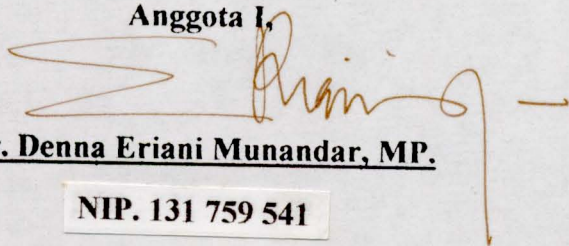 Anggota I,
. Denna Eriani Munandar, MP.
NIP. 131 759 541